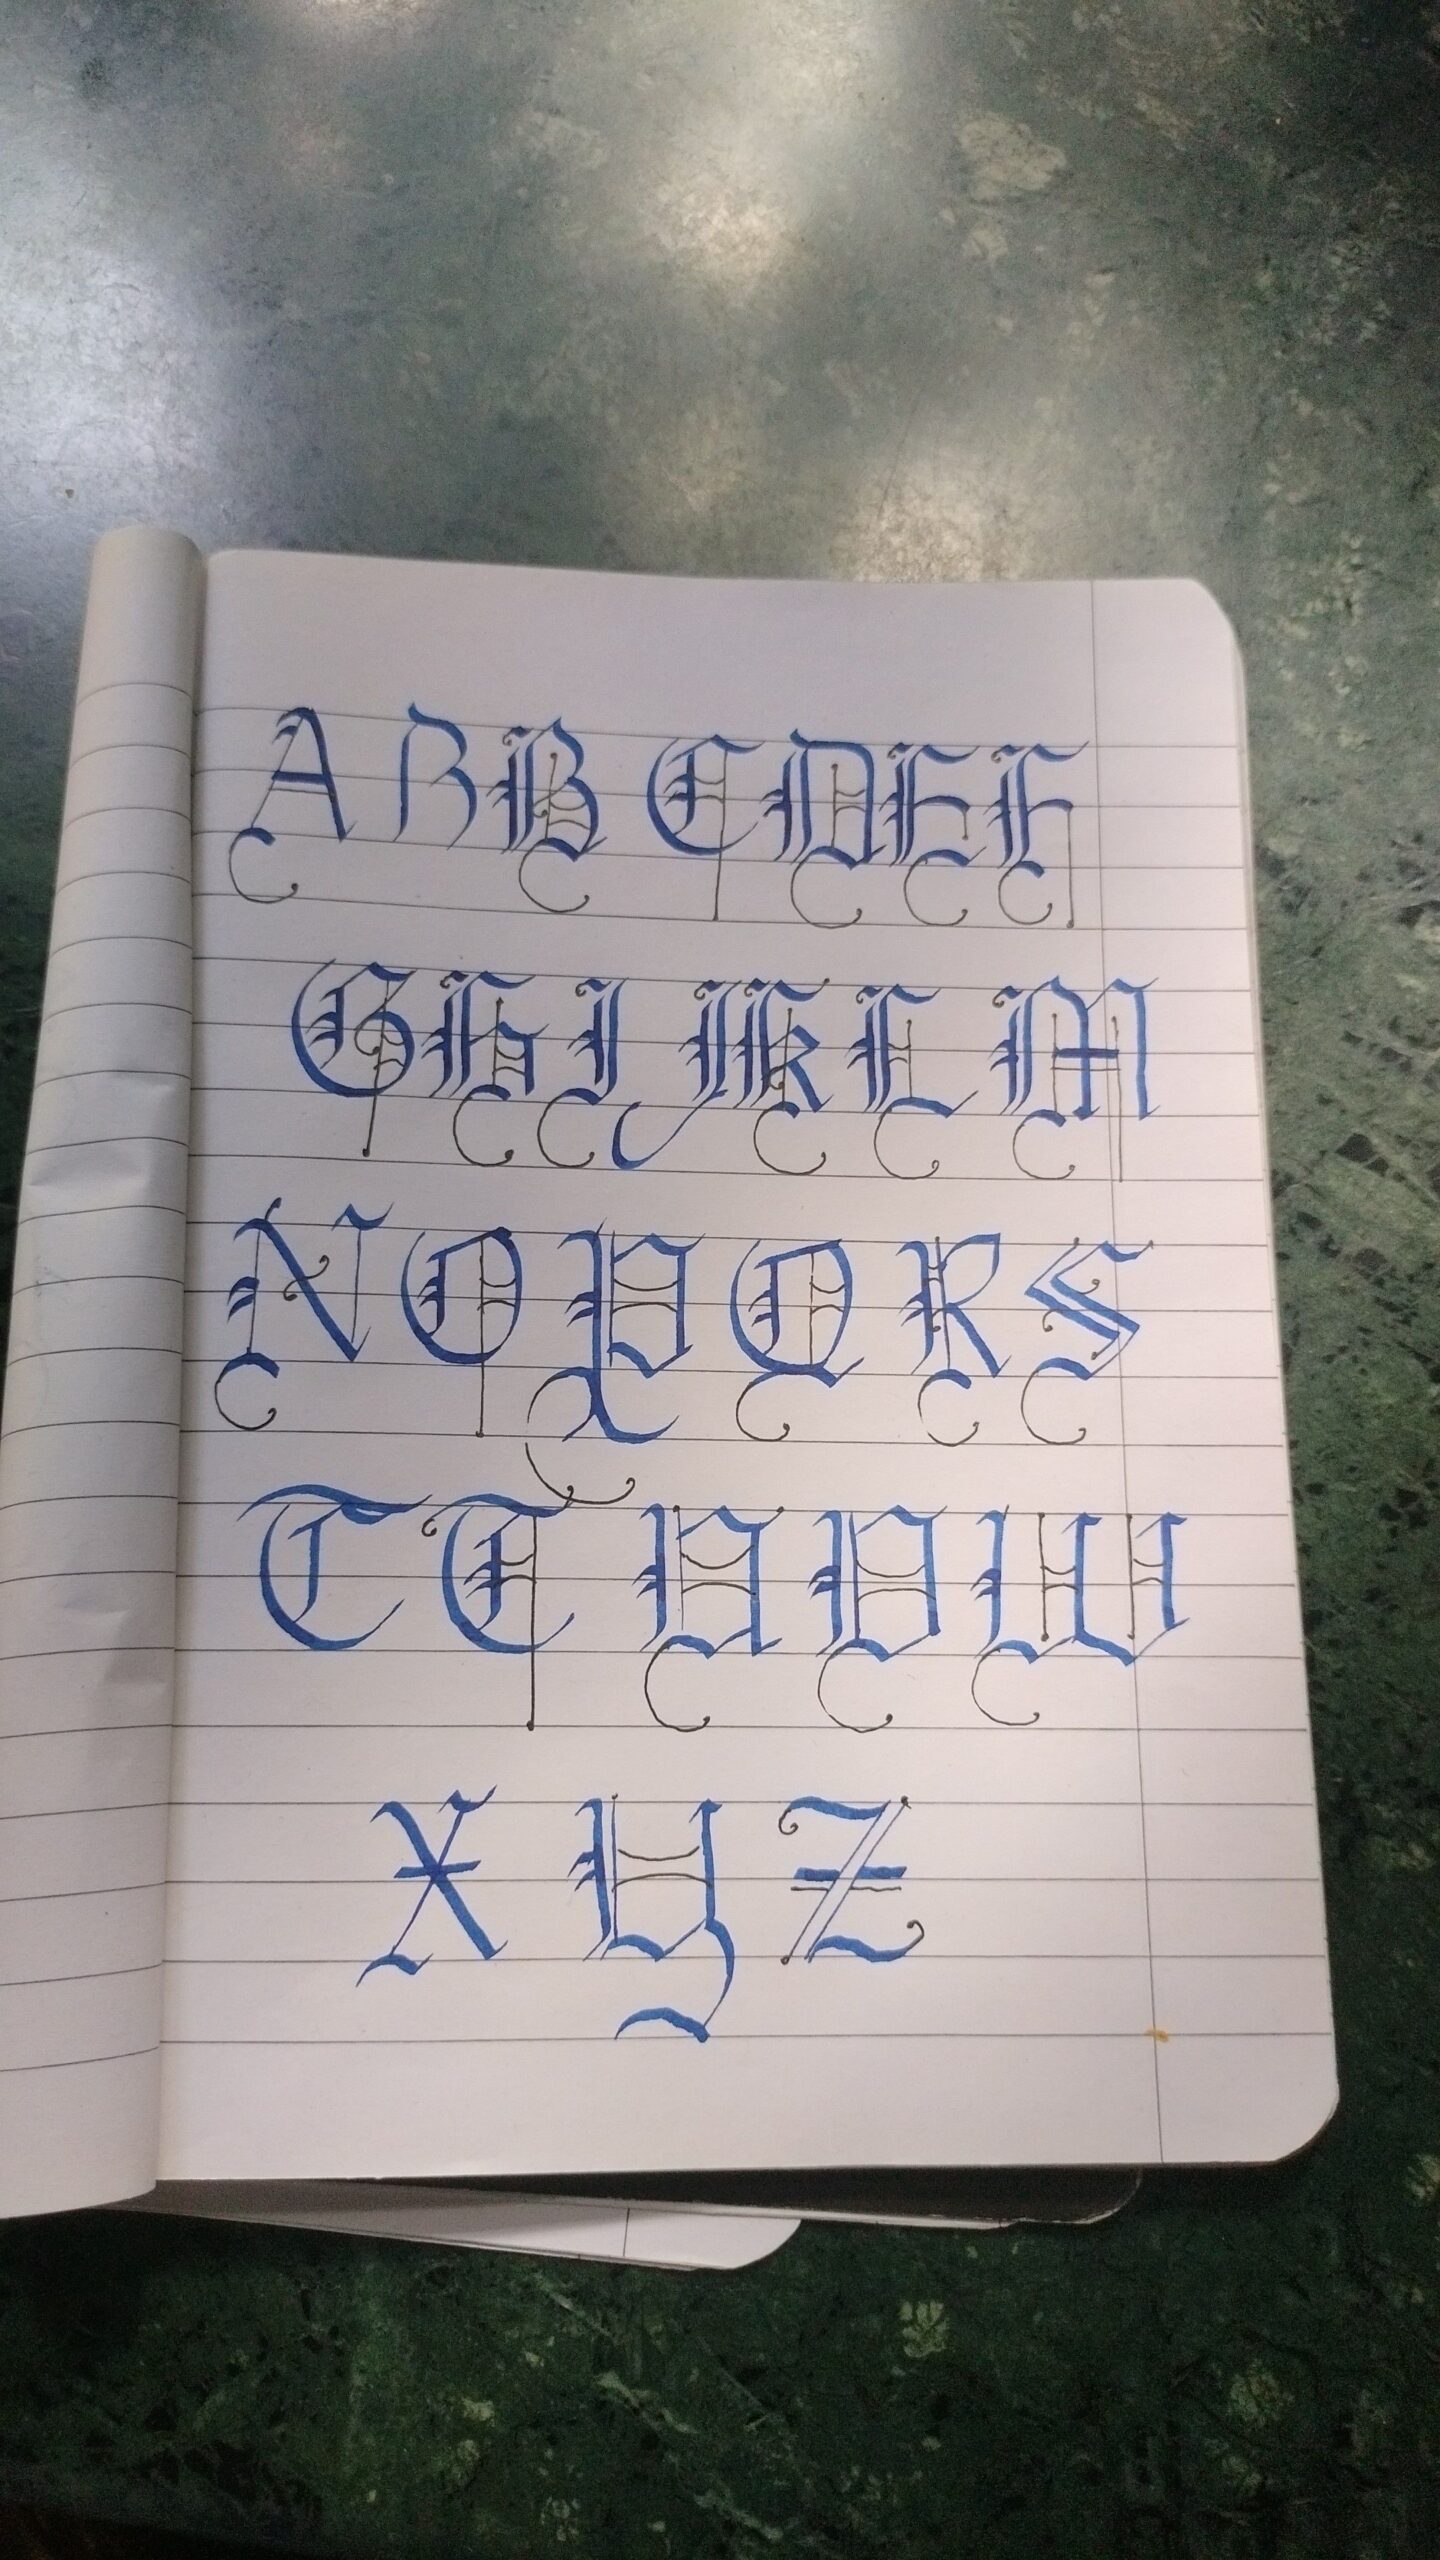 A B B C D E F
G H I J K L M
N O P Q R S
T T U V W
X Y Z